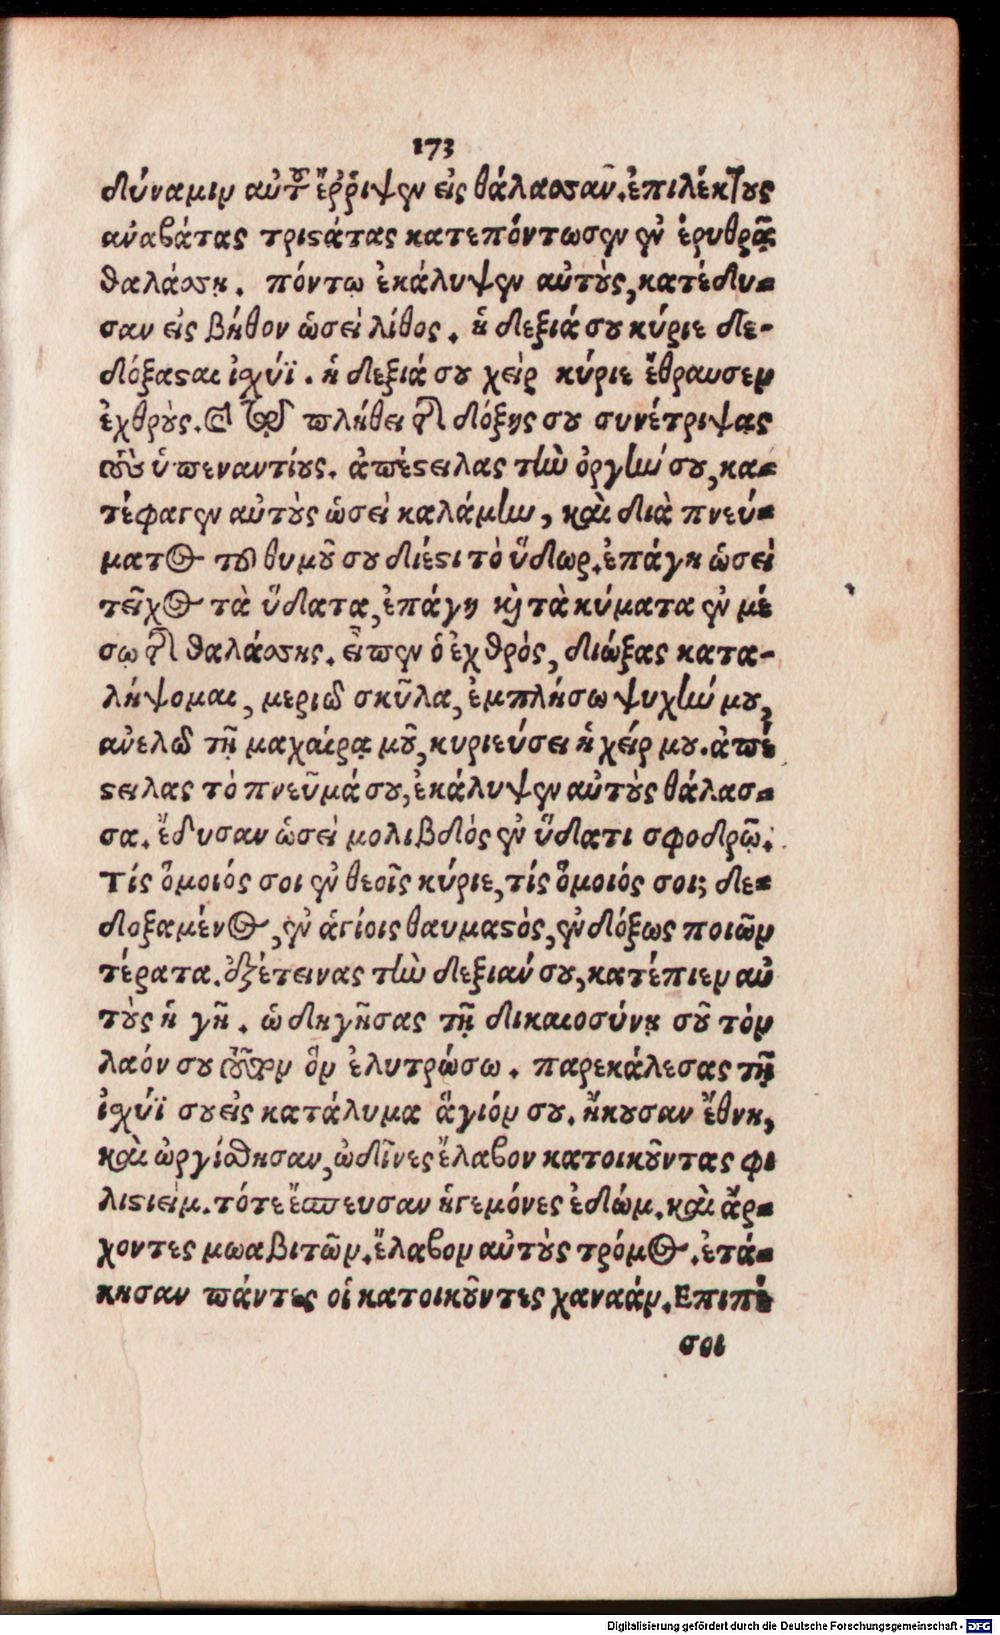 173
δύναμιν αὐτοῦ ἔῤῥιψεν εἰς θάλασσαν. ἐπιλέκτους
ἀναβάτας τριστάτας κατεπόντωσεν ἐν ἐρυθρᾷ
θαλάσσῃ. πόντῳ ἐκάλυψεν αὐτοὺς, κατέδυ-
σαν εἰς βῆθον ὡσεὶ λίθος. ἡ δεξιά σου κύριε δε-
δόξασαι ἰσχύϊ. ἡ δεξιά σου χεὶρ κύριε ἔθραυσεν
ἐχθρούς. καὶ τῷ πλήθει τῆς δόξης σου συνέτριψας
τοὺς ὑπεναντίους. ἀπέστειλας τὴν ὀργήν σου, κα-
τέφαγεν αὐτοὺς ὡσεὶ καλάμην, καὶ διὰ πνεύ-
ματος τοῦ θυμοῦ σου διέστι τὸ ὕδωρ. ἐπάγη ὡσεὶ
τεῖχος τὰ ὕδατα, ἐπάγη καὶ τὰ κύματα ἐν μέ
σῳ τῆς θαλάσσης. εἶπεν ὁ ἐχθρὸς, διώξας κατα-
λήψομαι, μεριῶ σκῦλα, ἐμπλήσω ψυχήν μου,
ἀνελῶ τῇ μαχαίρᾳ μοῦ, κυριεύσει ἡ χείρ μου. ἀπέ
στειλας τὸ πνεῦμά σου, ἐκάλυψεν αὐτοὺς θάλασ-
σα. ἔδυσαν ὡσεὶ μολιβδὸς ἐν ὕδατι σφοδρῷ.
Τίς ὅμοιός σοι ἐν θεοῖς κύριε, τίς ὅμοιός σοι; δε-
δοξαμένος, ἐν ἁγίοις θαυμαστὸς, ἐνδόξως ποιῶν
τέρατα. ἐξέτεινας τὴν δεξιάν σου, κατέπιεν αὐ
τοὺς ἡ γῆ. ὡδηγῆσας τῇ δικαιοσύνῃ σοῦ τὸν
λαόν σου τοῦτον ὃν ἐλυτρώσω. παρεκάλεσας τῇ
ἰσχύϊ σου εἰς κατάλυμα ἅγιόν σου. ἤκουσαν ἔθνη,
καὶ ὠργίσθησαν, ὠδῖνες ἔλαβον κατοικοῦντας φι
λιστιείμ. τότε ἔσπευσαν ἡγεμόνες ἐδώμ. καὶ ἄρ-
χοντες μωαβιτῶν. ἔλαβον αὐτοὺς τρόμος. ἐτά-
κησαν πάντες οἱ κατοικοῦντες χαναάν. Επιπέ
σοι
Digitalisierung gefördert durch die Deutsche Forschungsgemeinschaft - DFG